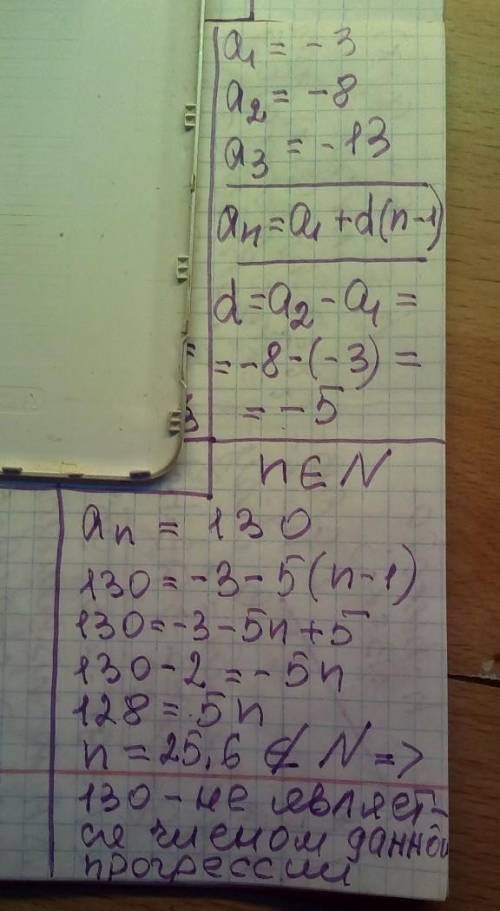 a₁ = -3
a₂ = -8
a₃ = -13
aₙ = a₁ + d(n-1)
d = a₂ - a₁ =
= -8 - (-3) =
= -5
n ∈ N
aₙ = 130
130 = -3 - 5(n-1)
130 = -3 - 5n + 5
130 - 2 = -5n
128 = 5n
n = 25,6 ∉ N =>
130 - не являет-
ся числом данной
прогрессии